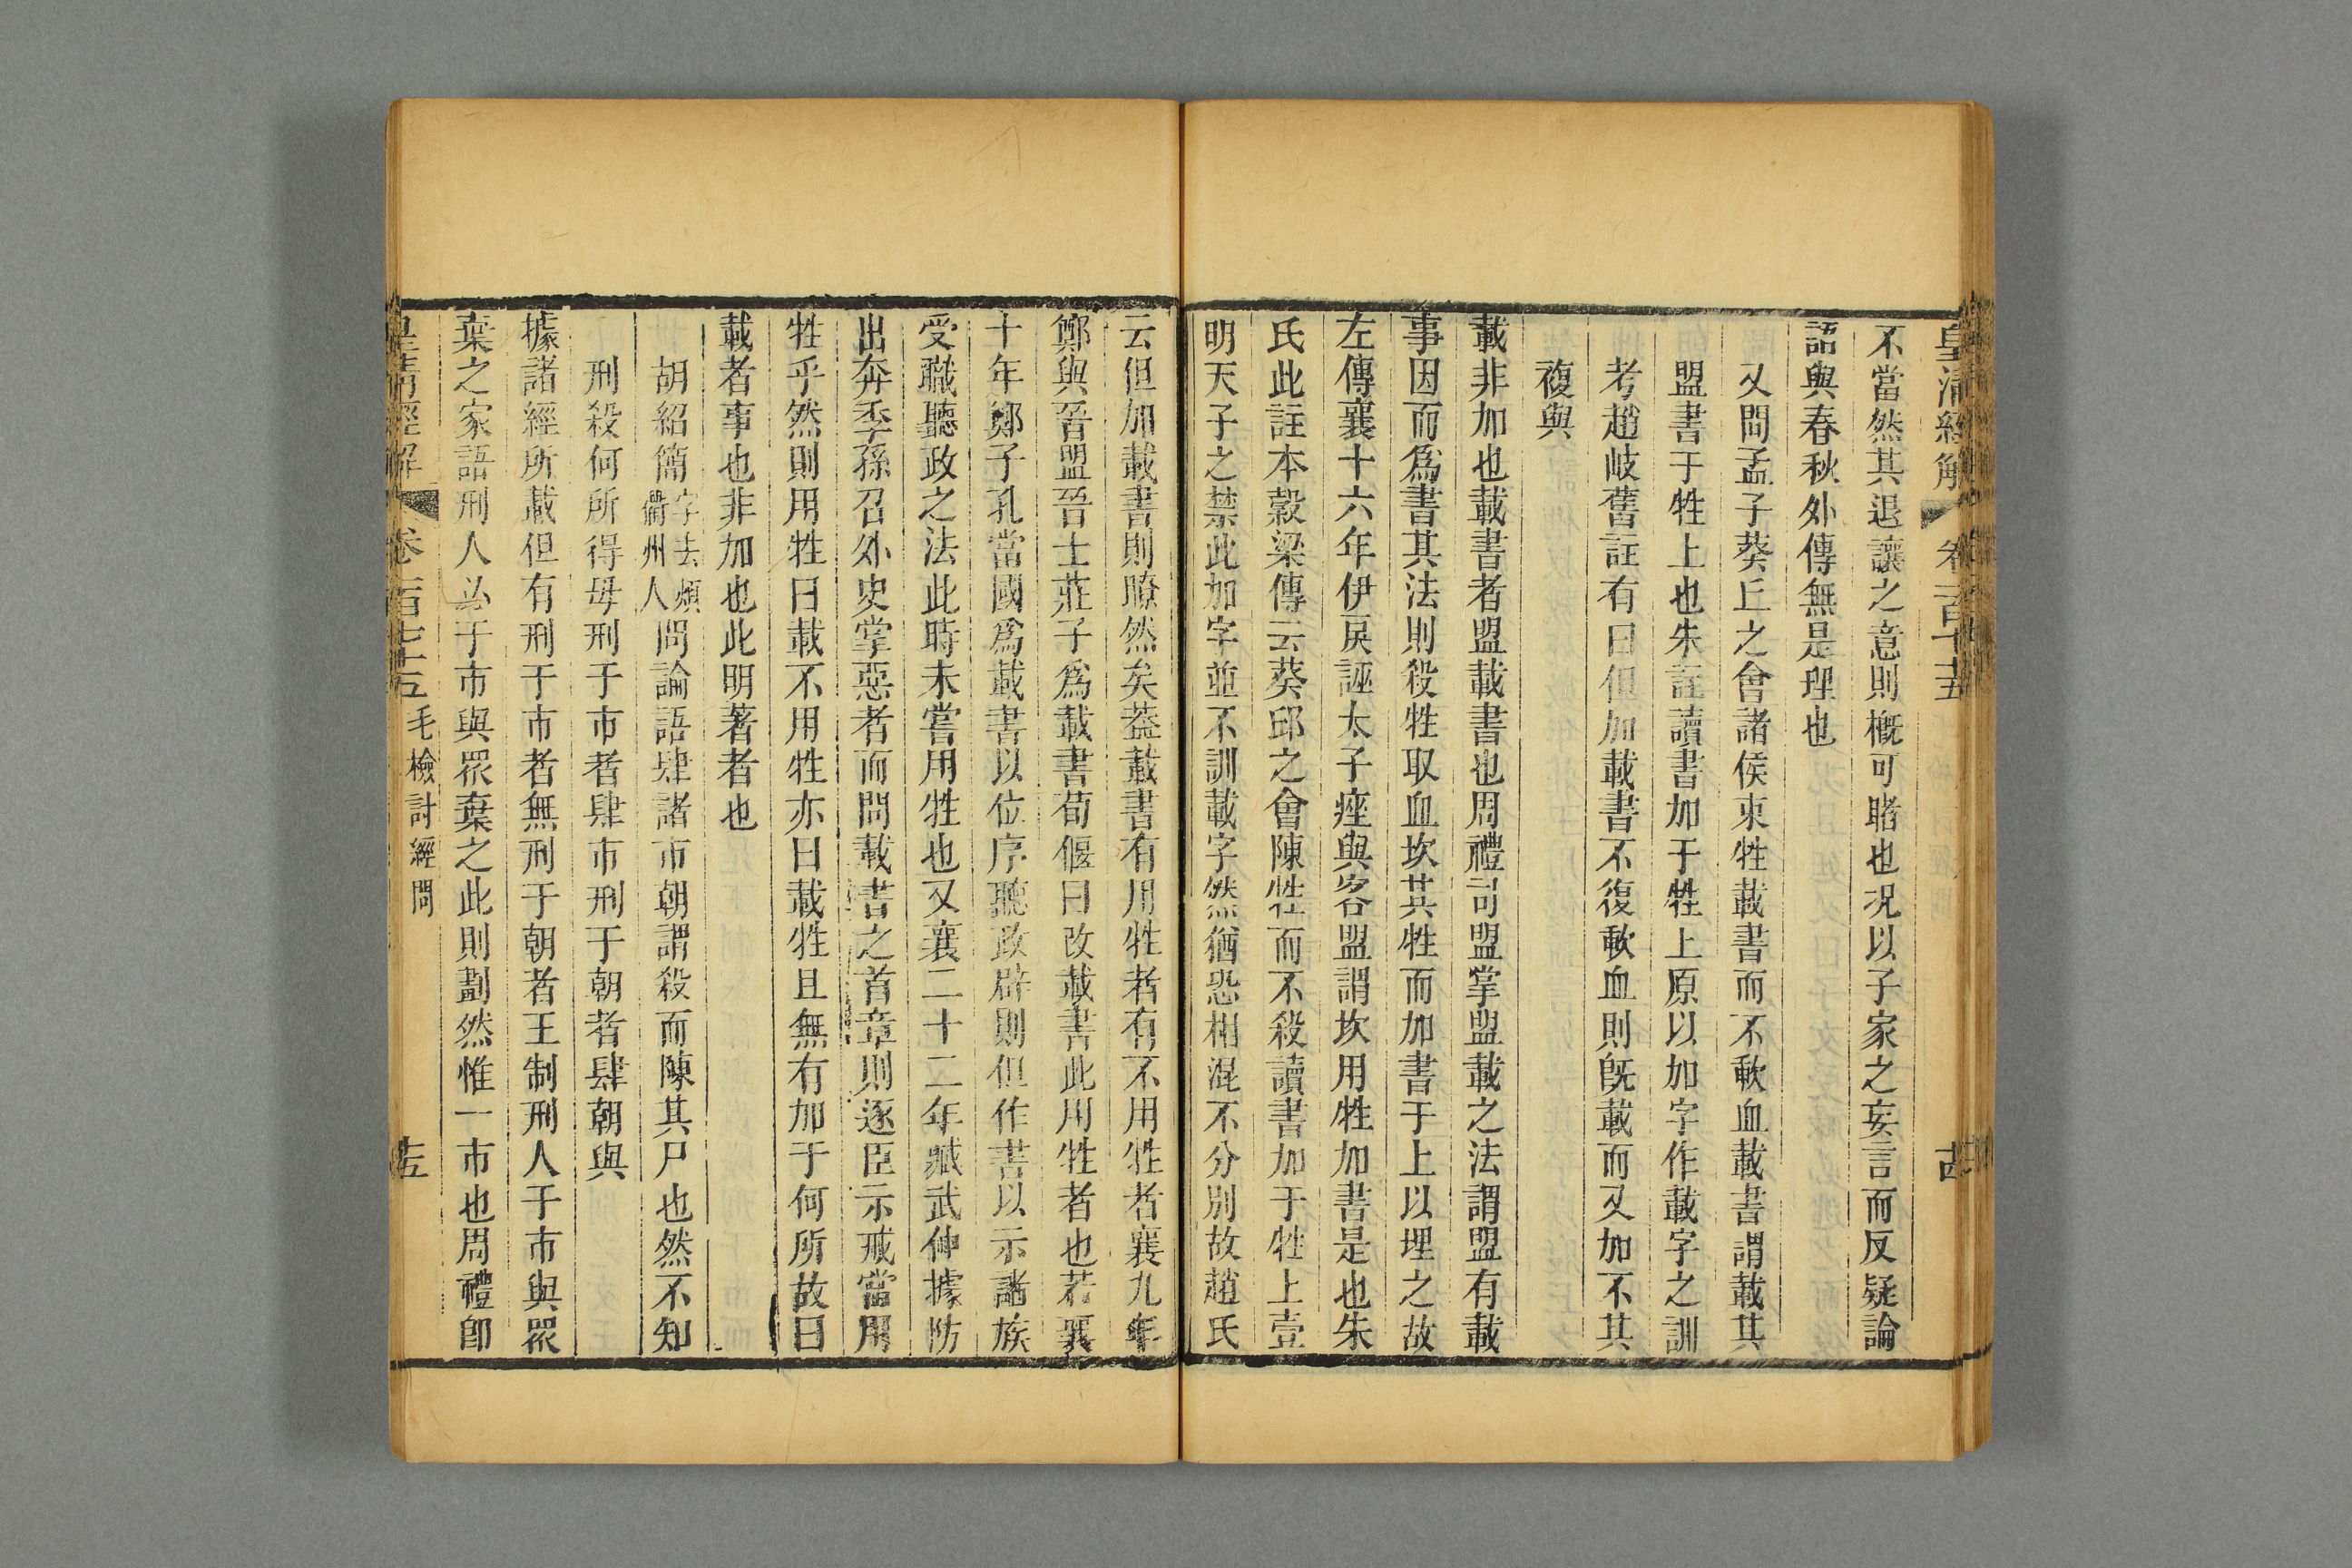 皇清經解 卷一百七十五 古
不當然其退讓之意則槪可睹也况以子家之妄言而反疑論
語與春秋外傳無是理也
又問孟子葵丘之會諸侯束牲載書而不歃血載書謂載其
盟書于牲上也朱註讀書加于牲上原以加字作載字之訓
考趙岐舊註有曰但加載書不復歃血則旣載而又加不其
複與
載非加也載書者盟載書也周禮司盟掌盟載之法謂盟有載
事因而爲書其法則殺牲取血坎其牲而加書于上以埋之故
左傳襄十六年伊戾誣太子痤與客盟謂坎用牲加書是也朱
氏此註本穀梁傳云葵邱之會陳牲而不殺讀書加于牲上壹
明天子之禁此加字並不訓載字然猶恐相混不分別故趙氏
云但加載書則瞭然矣葢載書有用牲者有不用牲者襄九年
鄭與晉盟晉士莊子爲載書荀偃曰改載書此用牲者也若襄
十年鄭子孔當國爲載書以位序聽政辟則但作書以示諸族
受職聽政之法此時未嘗用牲也又襄二十二年臧武仲據防
出奔季孫召外史掌惡者而問載書之首章則逐臣示戒當用
牲乎然則用牲曰載不用牲亦曰載牲且無有加于何所故曰
載者事也非加也此明著者也
胡紹簡字去煩衢州人問論語肆諸市朝謂殺而陳其尸也然不知
刑殺何所得毋刑于市者肆市刑于朝者肆朝與
據諸經所載但有刑于市者無刑于朝者王制刑人于市與眾
棄之家語刑人必于市與眾棄之此則劃然惟一市也周禮卽
皇清經解 卷一百七十五 毛檢討經問 左